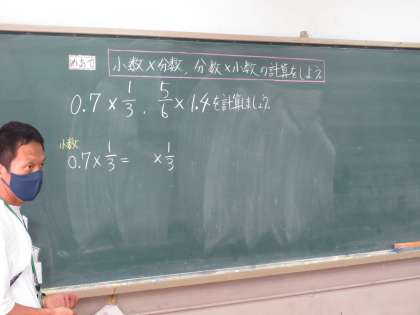 めあて 小数×分数、分数×小数の計算をしよう
0.7×1/3、5/6×1.4を計算しましょう。
小数
0.7×1/3=　×1/3